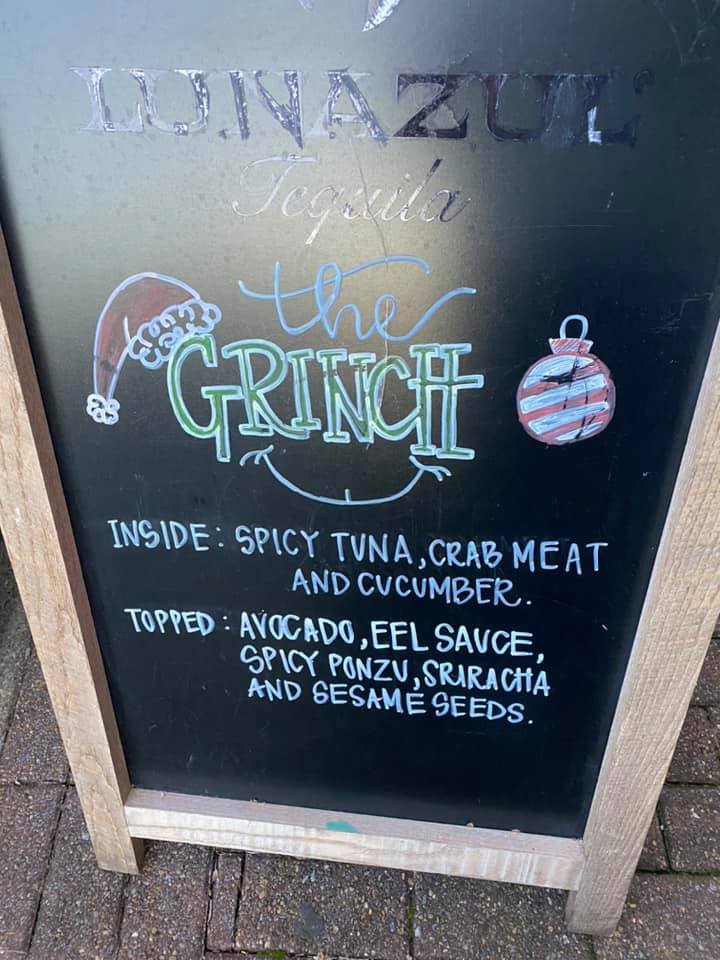 LUNAZUL
Tequila
the
GRINCH
INSIDE: SPICY TUNA, CRAB MEAT
AND CUCUMBER.
TOPPED: AVOCADO, EEL SAUCE,
SPICY PONZU, SRIRACHA
AND SESAME SEEDS.